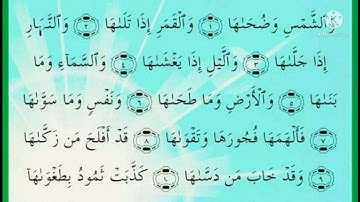 وَٱلشَّمْسِ وَضُحَىٰهَا ۝١ وَٱلْقَمَرِ إِذَا تَلَىٰهَا ۝٢ وَٱلنَّهَارِ
إِذَا جَلَّىٰهَا ۝٣ وَٱلَّيْلِ إِذَا يَغْشَىٰهَا ۝٤ وَٱلسَّمَآءِ وَمَا
بَنَىٰهَا ۝٥ وَٱلْأَرْضِ وَمَا طَحَىٰهَا ۝٦ وَنَفْسٍ وَمَا سَوَّىٰهَا
۝٧ فَأَلْهَمَهَا فُجُورَهَا وَتَقْوَىٰهَا ۝٨ قَدْ أَفْلَحَ مَن زَكَّىٰهَا
۝٩ وَقَدْ خَابَ مَن دَسَّىٰهَا ۝١٠ كَذَّبَتْ ثَمُودُ بِطَغْوَىٰهَآ